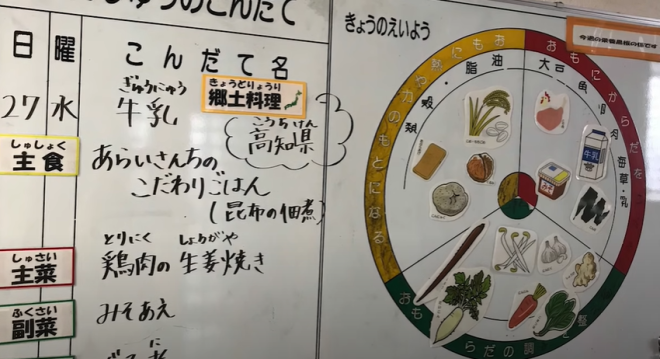 のこんだて
日 曜
こんだて名
27 水
ぎゅうにゅう
牛乳
きょうどりょうり
郷土料理
こうちけん
高知県
しゅしょく
主食
あらいさんちの
こだわりごはん
(昆布の佃煮)
しゅさい
主菜
とりにく しょうがや
鶏肉の生姜焼き
ふくさい
副菜
みそあえ
に
きょうのえいよう
おもに熱や力のもとになる
油脂
穀類
おもにからだを
大豆・魚・肉
海草・乳
牛乳
おもにからだの調
整